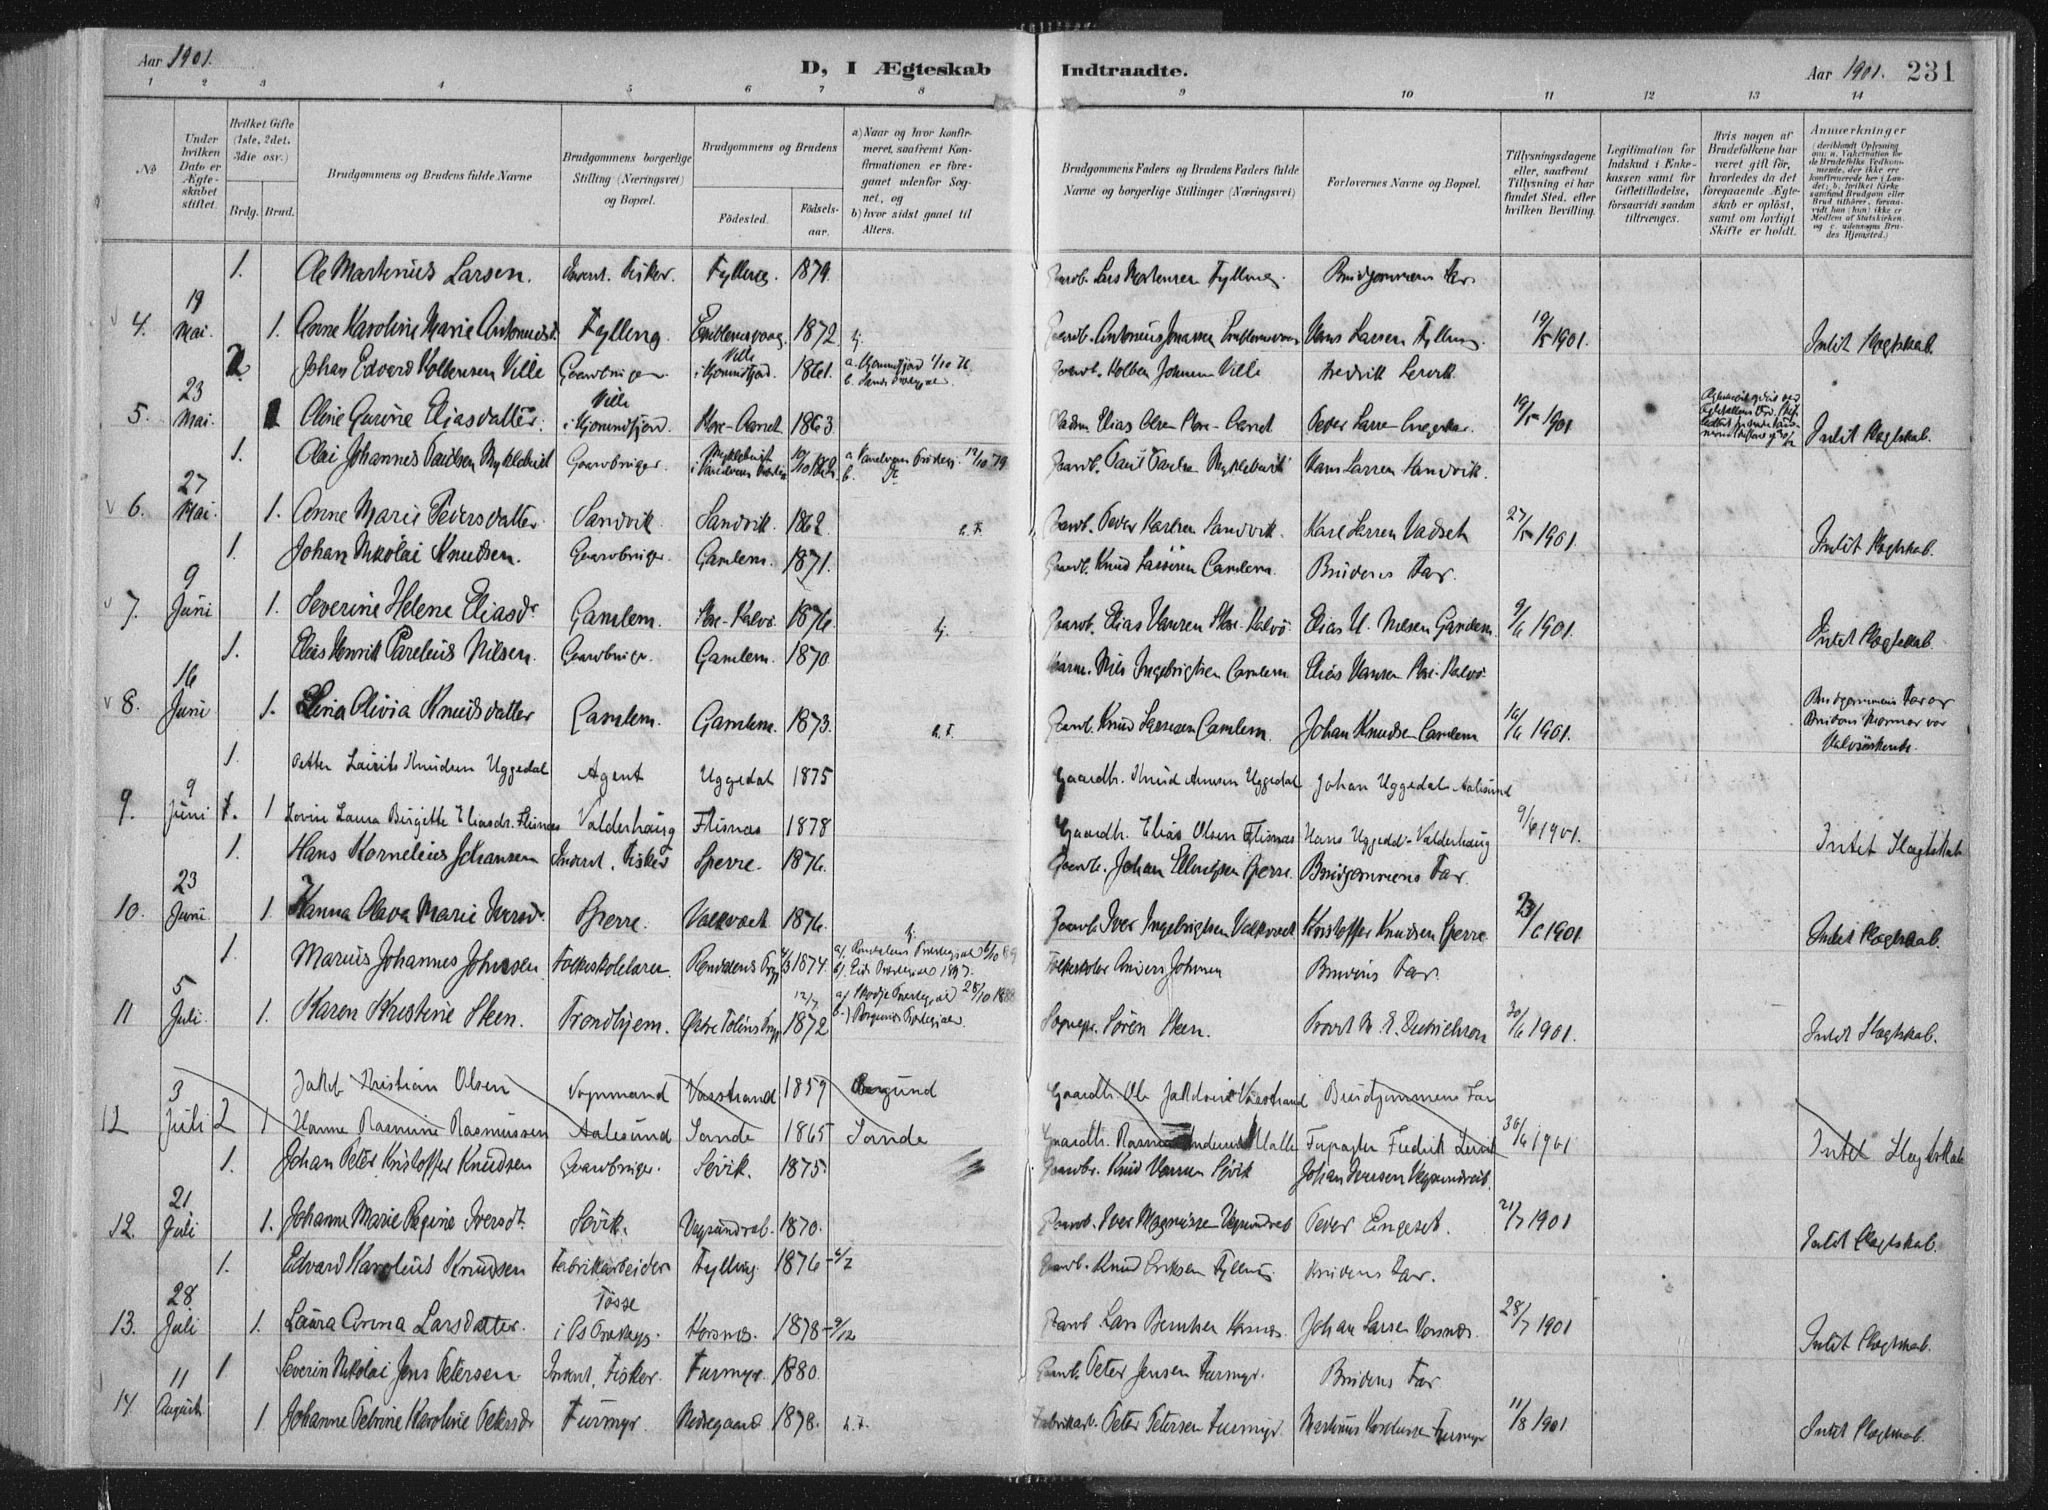 Aar 1901.
D, I Ægteskab Indtraadte.
Aar 1901. 231
1 2 3 4 5 6 7 8 9 10 11 12 13 14
No
Under hvilken Dato er Ægteskabet stiftet.
Hvilket Gifte (1ste, 2det, 3die osv.)
Brdg. Brud.
Brudgommens og Brudens fulde Navne
Brudgommens borgerlige Stilling (Næringsvei) og Bopæl.
Brudgommens og Brudens
Fødested. Fødselsaar.
a) Naar og hvor konfirmeret, saafremt Konfirmationen er foregaaet udenfor Sognet, og
b) hvor sidst gaaet til Alters.
Brudgommens Faders og Brudens Faders fulde Navne og borgerlige Stillinger (Næringsvei)
Forlovernes Navne og Bopæl.
Tillysningsdagene eller, saafremt Tillysning ei har fundet Sted, efter hvilken Bevilling.
Legitimation for Indskud i Enkekassen samt for Giftetilladelse, forsaavidt saadan tiltrænges.
Hvis nogen af Brudefolkene har været gift før, hvorledes da det foregaaende Ægteskab er opløst, samt om lovligt Skifte er holdt.
Anmærkninger (deriblandt Oplysning om: a. Vakcination for de Brudefolks Vedkommende, der ikke ere konfirmerede her i Landet; b. hvilket Kirkesamfund Brudgom eller Brud tilhører, forsaavidt han (hun) ikke er Medlem af Statskirken, og c. udensogns Brudes Hjemsted.)
1. Ole Martinus Larsen. Inderst. Fisker. Fylling 1879. Gaardb. Lars Mortensen Fylling. Brudgommens Far
4. 19 Mai 1. Anne Karoline Marie Antonusdt. Fylling. Emblemsvaag. 1872. Gaardb. Antonius Jonassen Emblemsvaag Hans Larsen Fylling. 19/5 1901. Intet Slægtskab.
2 Johan Edvard Kolbensen Ville Gaardbruger i Hjørundfjord. 1861. a. Hjørundfjord 1/10 76 Gaardb. Kolben Johnsen Ville Fredrik Lervik
5. 23 Mai. Oline Gurine Eliasdatter. Ville i Hjørundfjord 1863. Elias Olsen Peder Larsen 19/5 1901 Intet Slægtskab.
1. Olai Johannes Paulsen Myklebust Gaardbruger. Myklebust 12/10 79 Gaardb. Paul Paulsen Myklebust Hans Larsen Sandvik.
6. 27 Mai. 1. Anne Marie Pedersdatter Sandvik Sandvik. 1862. Gaardb. Peder Karlsen Sandvik. Karl Larsen Vadset 27/5 1901. Intet Slægtskab.
1. Johan Nikolai Knudsen. Gaardbruger Gamlem. 1871. Gaardb. Knud Lassesen Gamlem. Brudens Far.
7. 9 Juni 1. Severine Helene Eliasdr Gamlem. Store-Kalvø 1876. Gaardb. Elias Hansen Store-Kalvø Elias H. Nilsen Gamlem 9/6 1901. Intet Slægtskab.
1. Elias Henrik Parelius Nilsen. Gaardbruger. Gamlem. 1870. Nils Ingebrigtsen Gamlem Elias Hansen Store-Kalvø
8. 16 Juni 1. Elina Olivia Knudsdatter Gamlem. Gamlem. 1873. Gaardb. Knud Lassesen Gamlem. Johan Knudsen Gamlem 16/6 1901. Brudgommens Far og Brudens Mormor var Halvsøskende.
1. Petter Laurits Knudsen Uggedal Agent Uggedal 1875 Gaardbr. Knud Arnesen Uggedal Johan Uggedal Aalesund
9. 9 Juni 1 Lovise Laura Birgitte Eliasdr. Flisnæs Valderhaug Flisnæs 1878 Gaardbr. Elias Olsen Flisnæs Hans Uggedal Valderhaug 9/6 1901. Intet Slægtskab
1. Hans Kornelius Johansen Inderst. Fisker Sperre. 1876. Gaardb. Johan Ellingsen Sperre. Brudgommens Far.
10. 23 Juni 1. Hanna Olava Marie Iversdr. Sperre. Valkvæt 1876. Gaardb. Iver Ingebrigtsen Valkvæt Kristoffer Knudsen Sperre 23/6 1901. Intet Slægtskab.
1. Marius Johannes Johnsen Folkeskolelærer. 1874. Anders Johnsen Brudens Far.
11 5 Juli. 1. Karen Kristine Steen. Trondhjem. 12/7 1872 28/10 1888 Sognepr. Sören Steen. 30/6 1901. Intet Slægtskab.
Jakob Kristian Olsen Vognmand Vasstrand 1859 Borgund Gaardb. Ole Jakobsen Vasstrand Brudgommens Far
12 3 Juli 2 1 Hanne Rasmine Rasmussen Aalesund Sande 1865 Sande Gaardbr. Rasmus Fredrik Lervik 30/6 1901 Intet Slægtskab
1. Johan Peter Kristoffer Knudsen Gaardbruger. Søvik. 1875. Gaardbr. Knud Hansen Søvik Johan Iversen Vegsundreit.
12. 21 Juli 1. Johanne Marie Regine Iversdt. Søvik. 1870. Gaardb. Iver Magnussen Peder Engeset. 21/7 1901 Intet Slægtskab.
1. Edvard Karolius Knudsen Fabrikarbeider Fylling 1876 4/2 Gaardb. Knud Eriksen Fylling Brudens Far.
13. 28 Juli 1. Laura Anna Larsdatter. Tøsse Korsnæs. 1878 9/12 Gaardb Lars Berntsen Korsnæs. Johan Larsen Korsnæs. 28/7 1901 Intet Slægtskab.
1. Severin Nikolai Jens Petersen Inderst, Fisker. Furmyr. 1880. Gaardb. Peter Jensen Furmyr. Brudens Far.
14 11 August 1 Johanne Petrine Karoline Petersdr Furmyr. Nedregaard 1878. Fabrikarb. Peter Petersen Furmyr. Furmyr 11/8 1901 Intet Slægtskab.